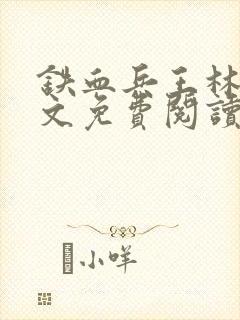 铁血兵王林
文免費閱讀
小咩